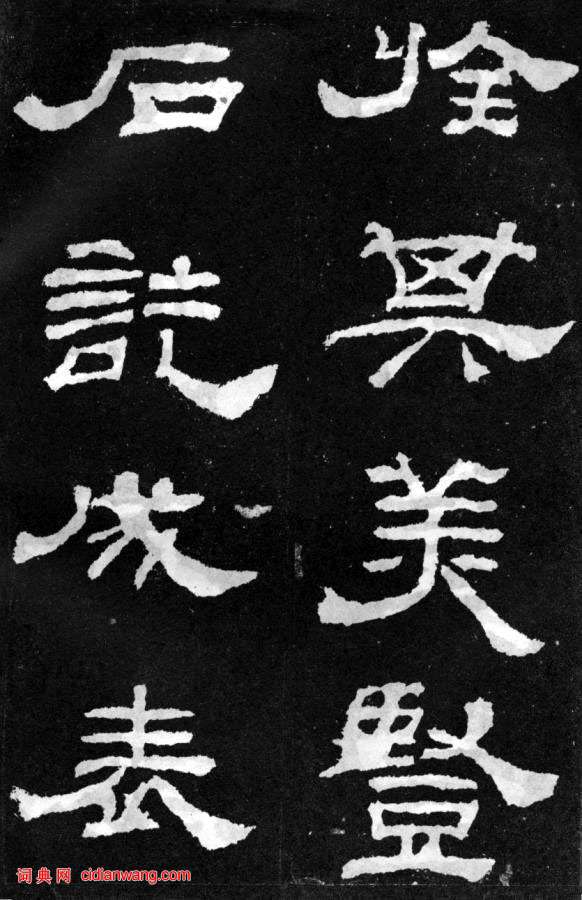 其美豎
石訖成表
词典网 cidianwang.com